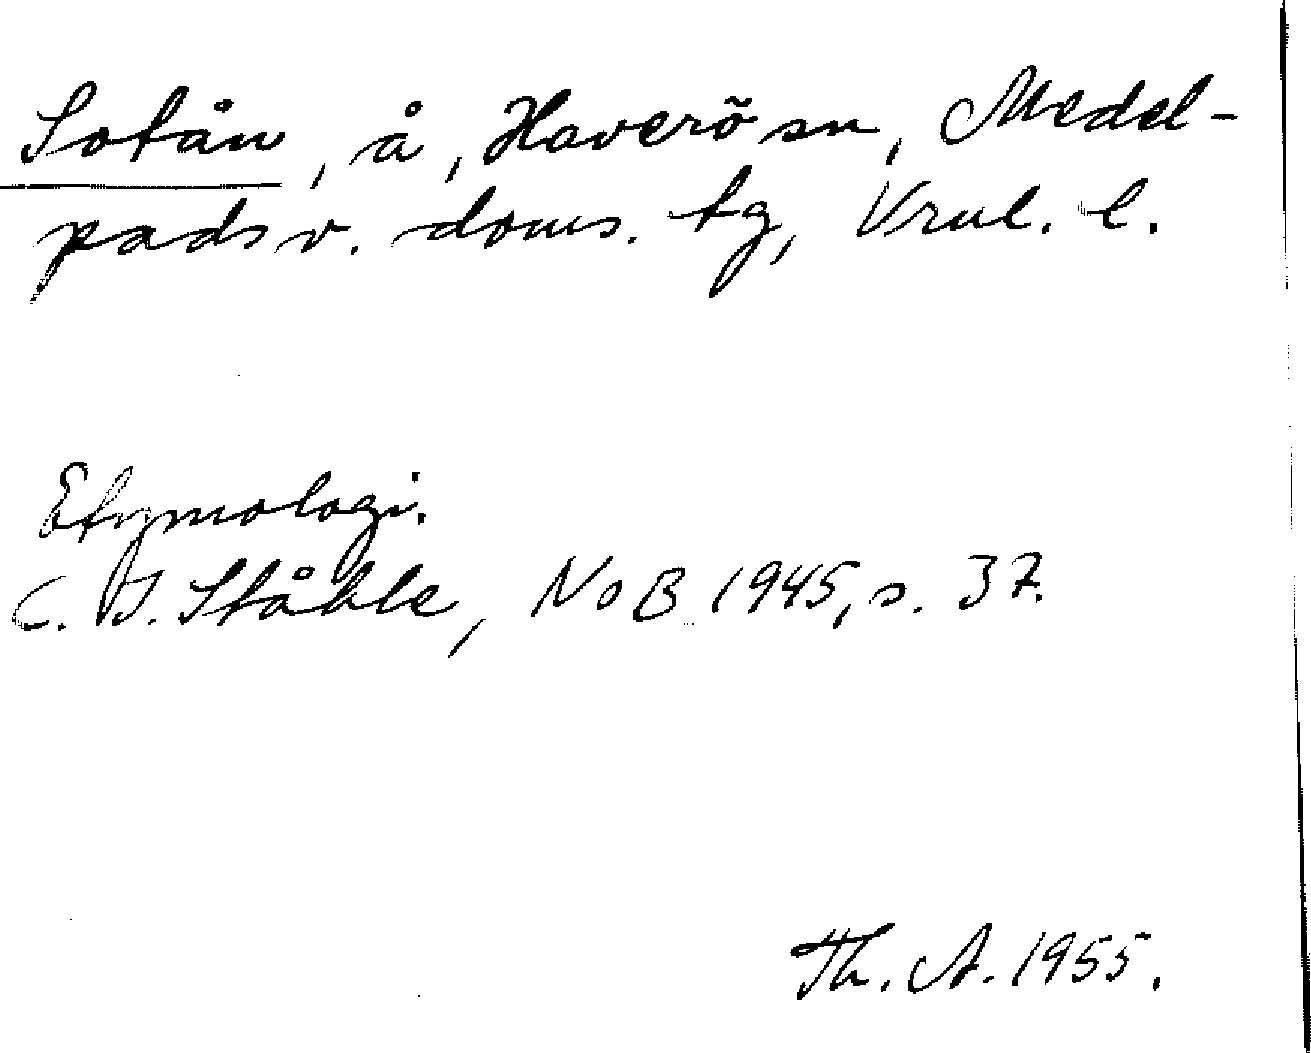 Sotån, å, Haverö sn, Medel-
pads v. doms. tg, Vrnl. l.
Etymologi.
C. I. Ståhle, NoB 1945, s. 37.
Th. A. 1955.